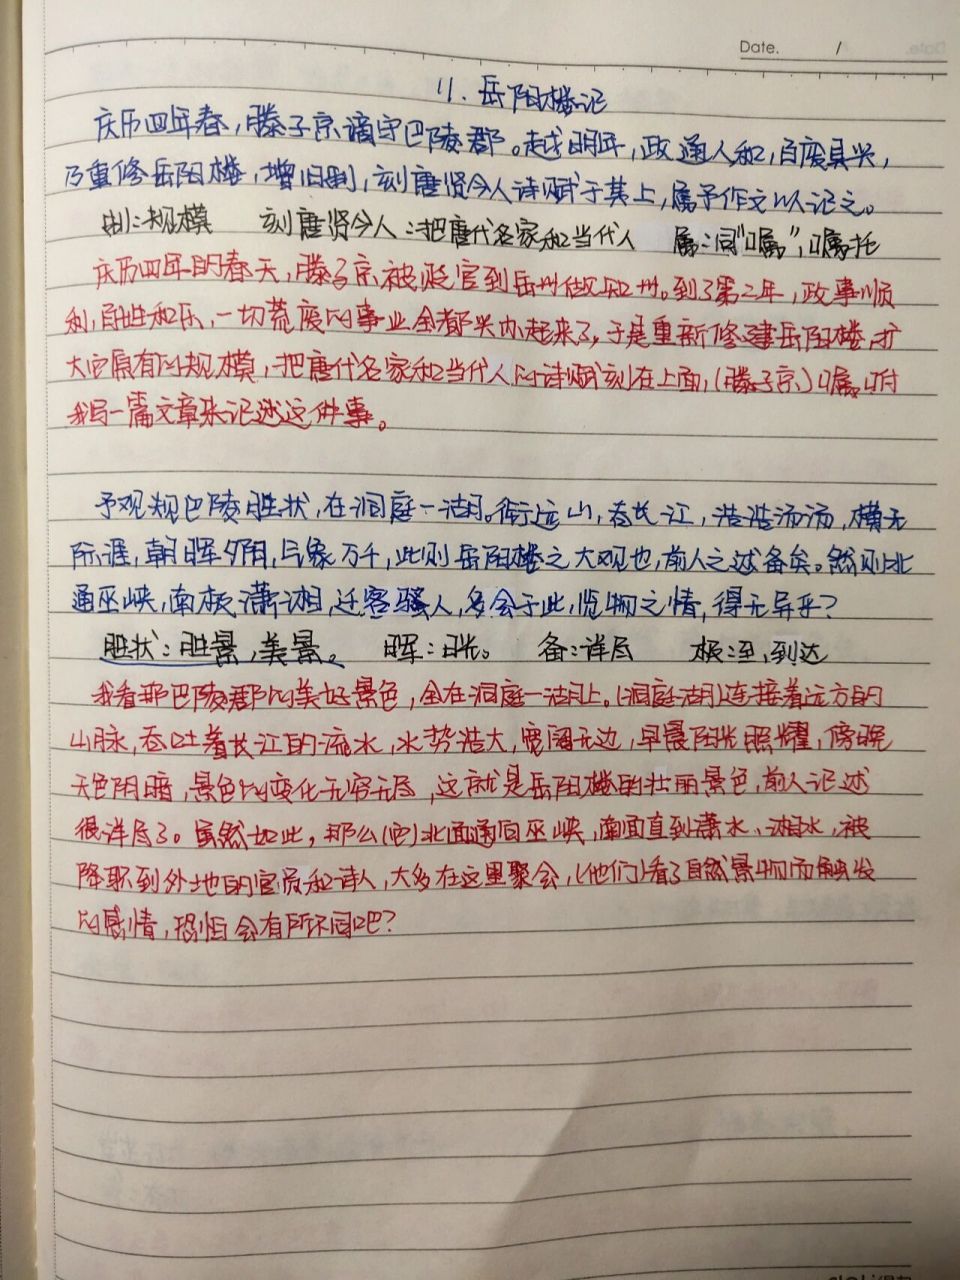 Date. /
11. 岳阳楼记
庆历四年春，滕子京谪守巴陵郡。越明年，政通人和，百废具兴，
乃重修岳阳楼，增旧制，刻唐贤今人诗赋于其上，属予作文以记之。
制：规模 刻唐贤今人：把唐代名家和当代人 属：同“嘱”，嘱托
庆历四年的春天，滕子京被贬官到岳州做知州。到了第二年，政事顺
利，百姓和乐，一切荒废的事业全都兴办起来了，于是重新修建岳阳楼，扩
大它原有的规模，把唐代名家和当代人的诗赋刻在上面，（滕子京）嘱咐
我写一篇文章来记述这件事。
予观观巴陵胜状，在洞庭一湖。衔远山，吞长江，浩浩汤汤，横无
际涯，朝晖夕阴，气象万千，此则岳阳楼之大观也，前人之述备矣。然则北
通巫峡，南极潇湘，迁客骚人，多会于此，览物之情，得无异乎？
胜状：胜景，美景。 晖：日光。 备：详尽 极：至，到达
我看那巴陵郡的美好景色，全在洞庭一湖上。（洞庭湖）连接着远方的
山脉，吞吐着长江的流水，水势浩大，宽阔无边，早晨阳光照耀，傍晚
天色阴暗，景色的变化无穷无尽，这就是岳阳楼的壮丽景色，前人记述
很详尽了。虽然如此，那么（它）北面通向巫峡，南面直到潇水、湘水，被
降职到外地的官员和诗人，大多在这里聚会，（他们）看了自然景物而触发
的感情，恐怕会有所不同吧？